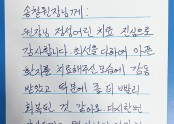 송철원장님께:
원장님 정성어린 치료 진심으로
감사합니다. 최선을 다하여 아픈
환자를 치료해주신 모습에 감동
받았고 덕분에 좀 더 빨리
회복된 것 같아요 다시한번